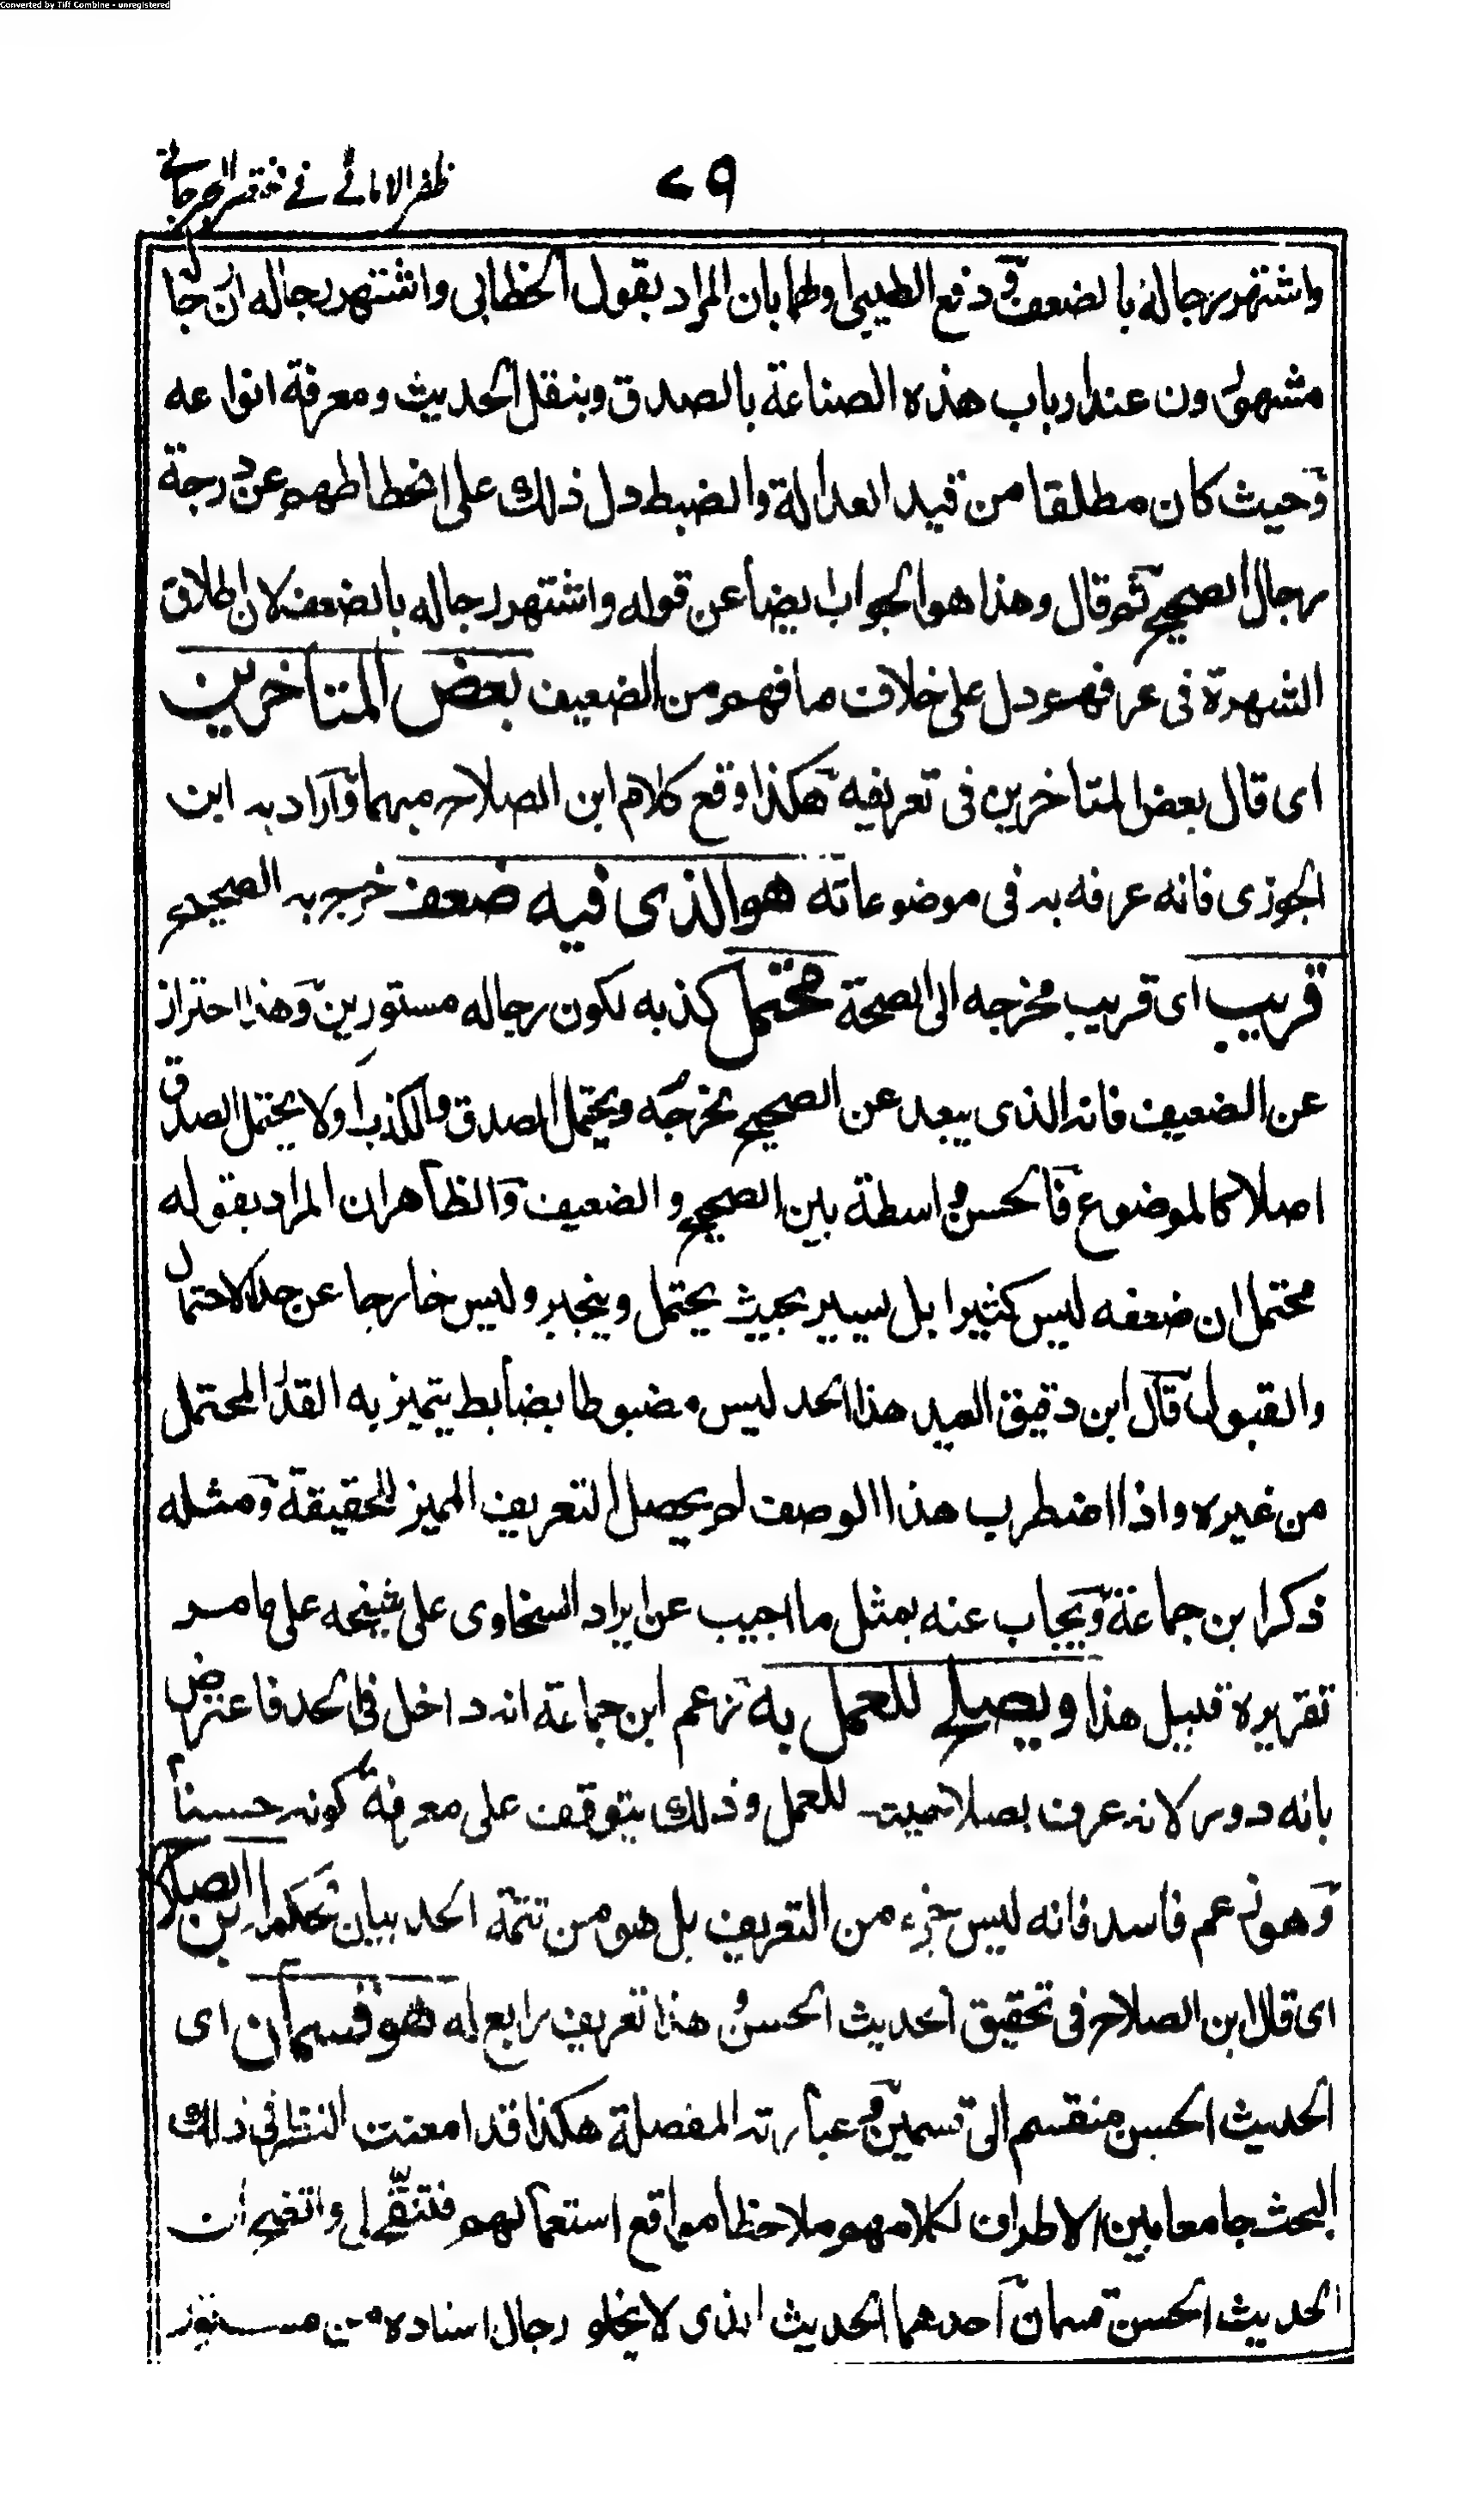 Converted by Tiff Combine - unregistered
ظفر الاماني في مختصر الجرجاني
٧٩
واشتهر رجاله بالضعف ودفع الطيبي اولهما بان المراد بقول الخطابي واشتهر رجاله ان رجاله
مشهورون عند ارباب هذه الصناعة بالصدق وبنقل الحديث ومعرفة انواعه
وحيث كان مطلقا من قيد العدالة والضبط دل ذلك على انحطاطهم عن درجة
رجال الصحيح ثم قال وهذا هو الجواب ايضا عن قوله واشتهر رجاله بالضعف لان اطلاق
الشهرة في عرفهم دل على خلاف ما فهم من الضعيف بعض المتاخرين
اى قال بعض المتاخرين فى تعريفه هكذا وقع كلام ابن الصلاح مبهما وآراد به ابن
الجوزى فانه عرفه به فى موضوعاته هو الذى فيه ضعف خرج به الصحيح
قريب اى قريب مخرجه الى الصحة محتمل كذبه لكون رجاله مستورين وهذا احتراز
عن الضعيف فانه الذى يبعد عن الصحيح مخرجه ويحتمل الصدق والكذب اولا يحتمل الصدق
اصلا كالموضوع فالحسن واسطة بين الصحيح والضعيف والظاهر ان المراد بقوله
محتمل ان ضعفه ليس كثيرا بل يسير بحيث يحتمل وينجبر وليس خارجا عن حد الاحتمال
والقبول قال ابن دقيق العيد هذا الحد ليس مضبوطا بضابط يتميز به القدر المحتمل
من غيره واذا اضطرب هذا الوصف لم يحصل التعريف المميز للحقيقة ومثله
ذكر ابن جماعة ويجاب عنه بمثل ما اجيب عن ايراد السخاوى على شيخه على ما مر
تقريره قبيل هذا ويصلح للعمل به زعم ابن جماعة انه داخل فى الحد فاعترض
بانه دور لانه عرف بصلاحيته للعمل وذلك يتوقف على معرفة كونه حسنا
وهو زعم فاسد فانه ليس جزء من التعريف بل هو من تتمة الحد بيان لحكمه ابن الصلاح
اى قال ابن الصلاح فى تحقيق الحديث الحسن هذا تعريف رابع له هو قسمان اى
الحديث الحسن منقسم الى قسمين وعبارته المفصلة هكذا قد امعنت النظر فى ذلك
البحث جامعا بين الاطراف لكلامهم ملاحظا مواقع استعمالهم فتنقح لى واتضح ان
الحديث الحسن قسمان آحدهما الحديث الذى لا يخلو رجال اسناده من مستور